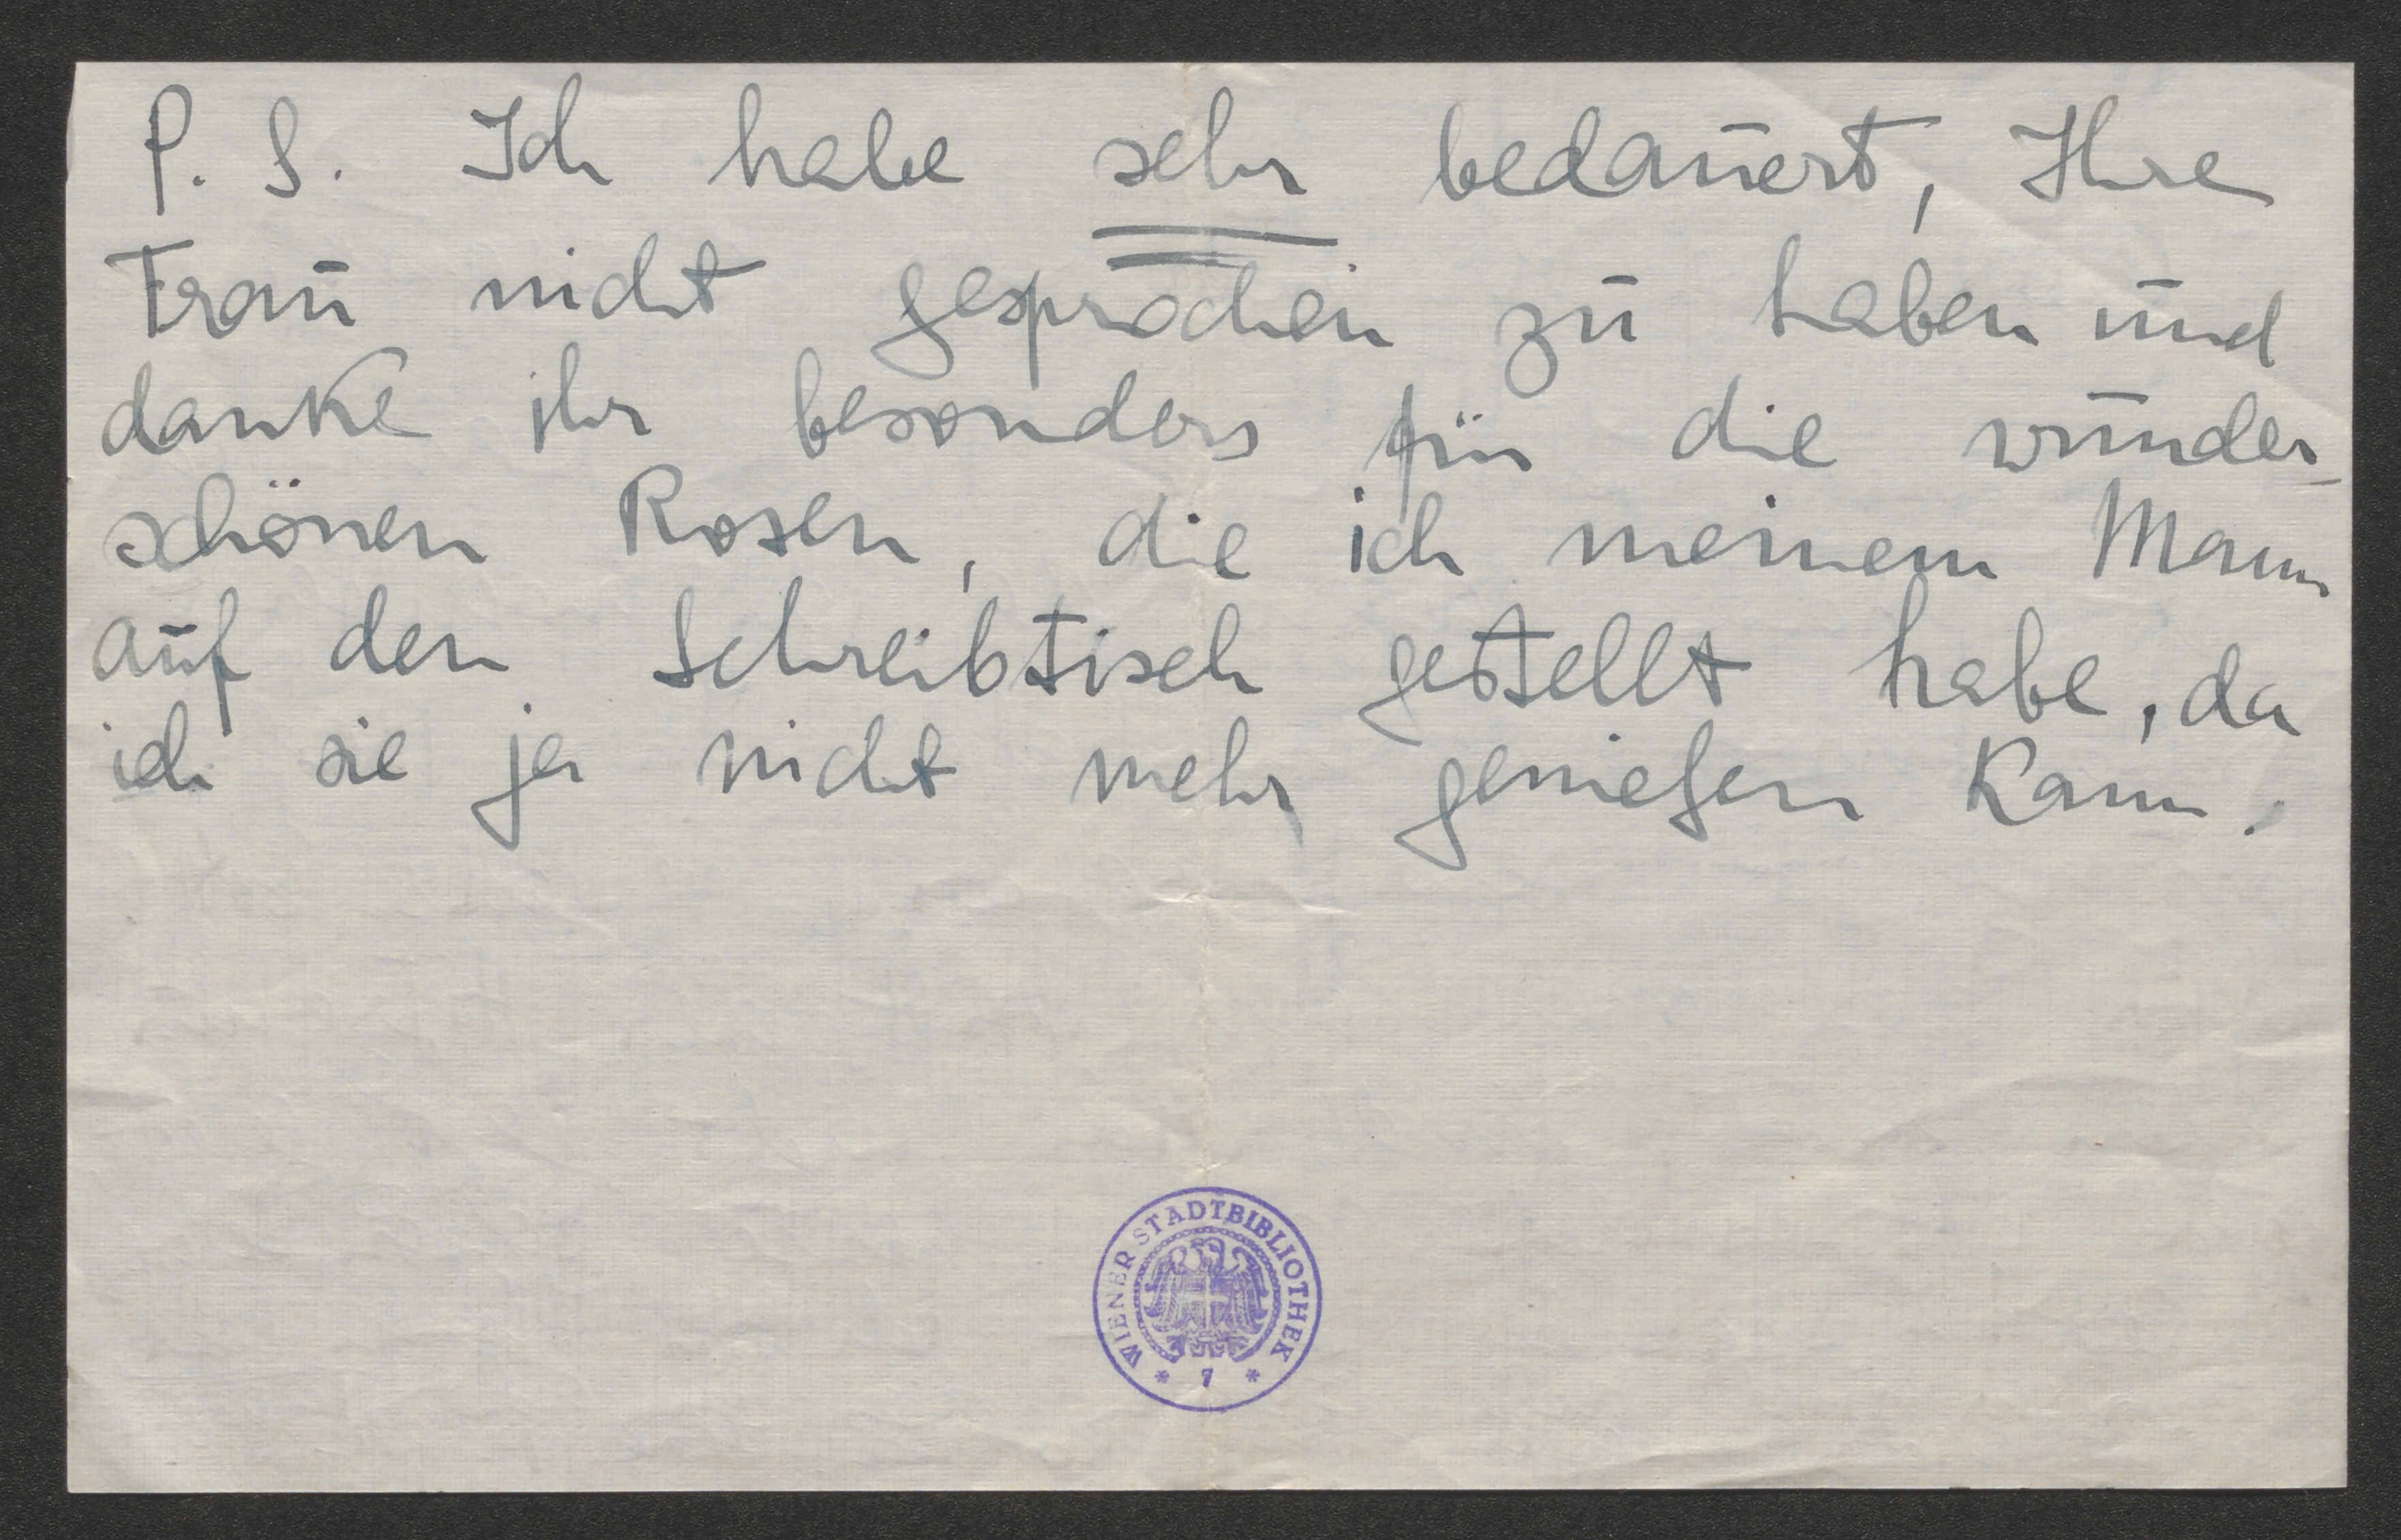 P. S. Ich habe sehr bedauert, Ihre
Frau nicht gesprochen zu haben und
danke ihr besonders für die wunder-
schönen Rosen, die ich meinem Mann
auf den Schreibtisch gestellt habe, da
ich sie ja nicht mehr genießen kann.
WIENER STADTBIBLIOTHEK
* 7 *